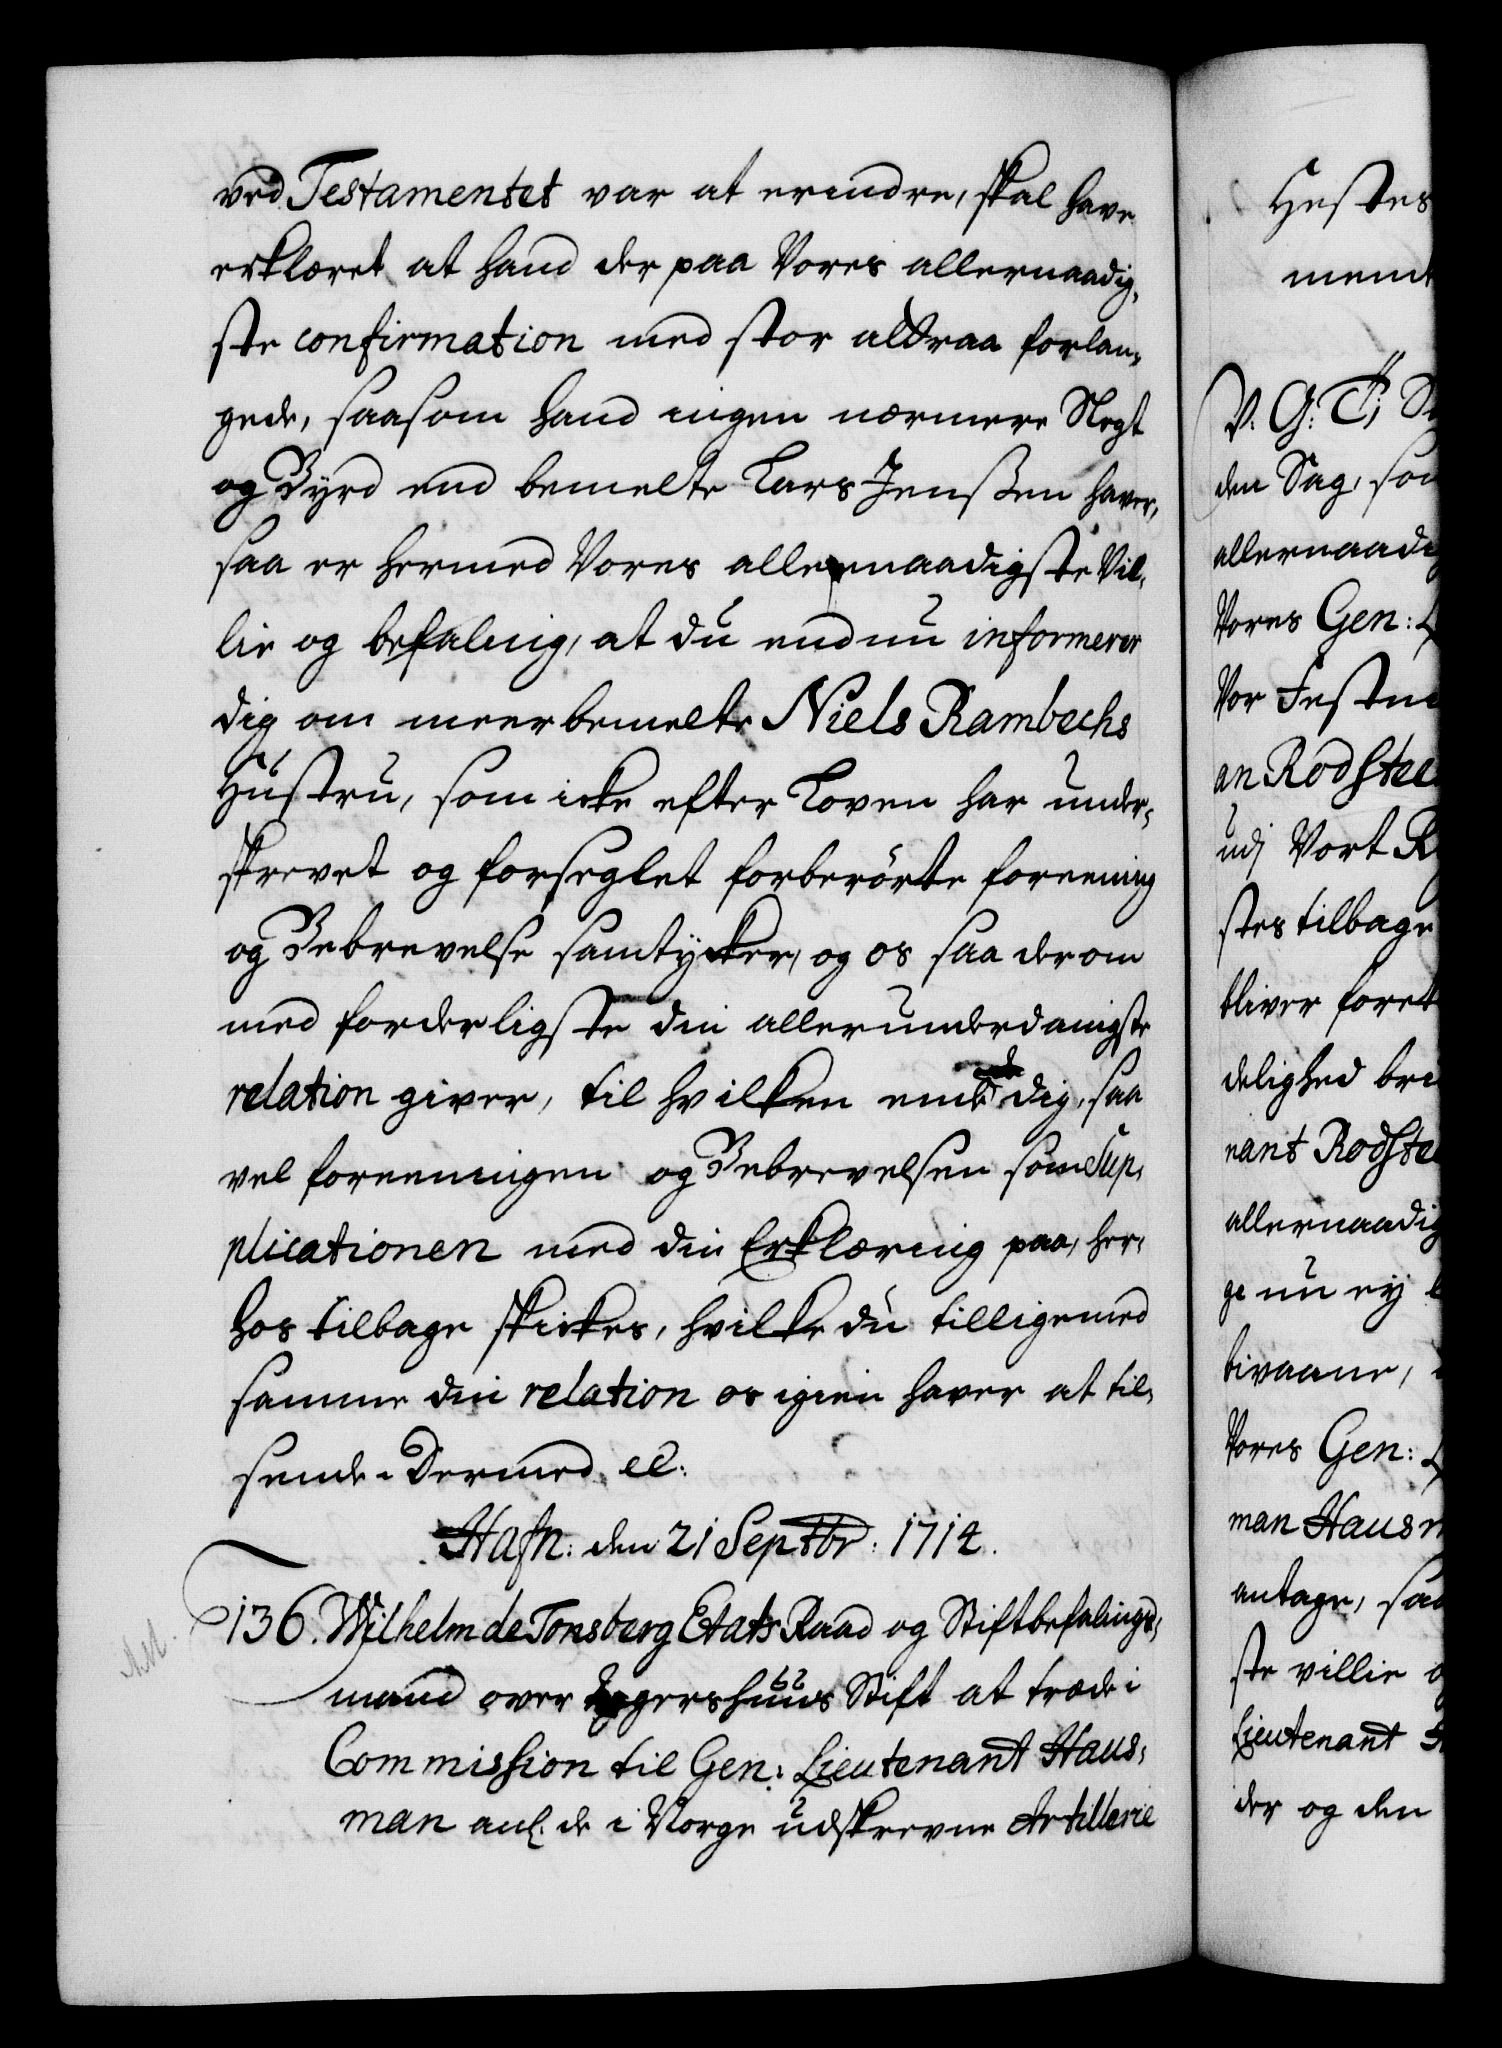 ved Testamentet var at erindre, skal have
erklæret at hand der paa Vores allernaadig,
ste confirmation med stor aldraa forlan,
gede, saasom hand ingen nærmere Slegt
og Byrd end bemelte Lars Jenssen haver,
saa er hermed Vores allernaadigste Vil,
lie og befaling, at du endnu informerer
dig om meerbemelte Niels Rambechs
Hustru, som icke efter Loven har under,
skrevet og forseglet forberörte foreening
og Bebrevelse samtycker, og os saa derom
med forderligste din allerunderdanigste
relation giver, til hvilken ende dig, saa
vel foreeningen og Bebrevelsen som Sup,
plicationen med din Erklæring paa, her,
hos tilbage skickes, hvilke du tilligemed
samme din relation os igien haver at til,
sende. Dermed etc:
Hafn: den 21 Septbr: 1714.
136. Wilhelm de Tonsberg Etats Raad og Stiftbefalings,
mand over Aggershuus Stift at træde i
Commission til Gen: Lieutenant Haus,
man anl. de i Norge udskrevne Artillerie
Hestes
V. G. T;
den Sag, som
allernaadig
Vores Gen:
Vor
an Rodstee
udj Vort R
stes tilbage
bliver
delighed
nant Rodste
allernaadig
ge nu ey
bivaane,
Vores Gen:
man Hausm
antage, saa
ste villie
Lieutenant
der og den